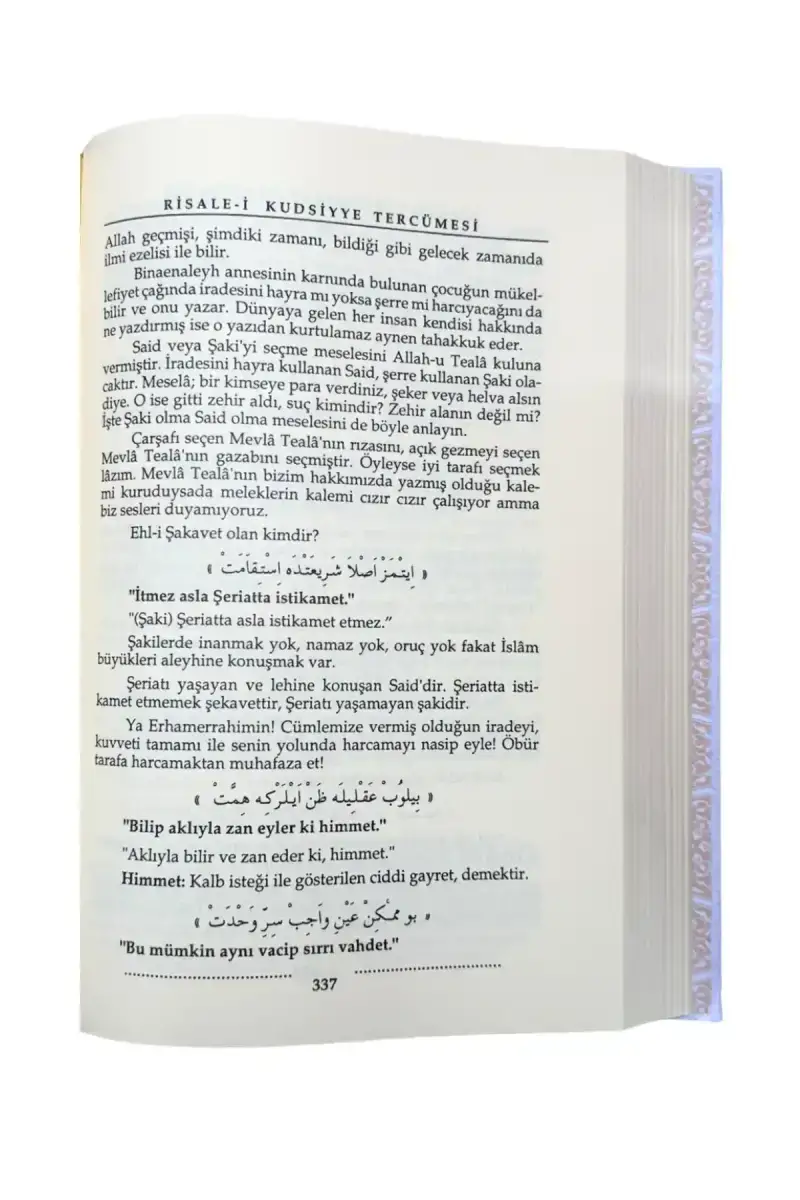 RİSALE-İ KUDSİYYE TERCÜMESİ
Allah geçmişi, şimdiki zamanı, bildiği gibi gelecek zamanıda
ilmi ezelisi ile bilir.
Binaenaleyh annesinin karnında bulunan çocuğun mükel-
lefiyet çağında iradesini hayra mı yoksa şerre mi harcıyacağını da
bilir ve onu yazar. Dünyaya gelen her insan kendisi hakkında
ne yazdırmış ise o yazıdan kurtulamaz aynen tahakkuk eder.
Said veya Şaki'yi seçme meselesini Allah-u Tealâ kuluna
vermiştir. İradesini hayra kullanan Said, şerre kullanan Şaki ola-
caktır. Meselâ; bir kimseye para verdiniz, şeker veya helva alsın
diye. O ise gitti zehir aldı, suç kimindir? Zehir alanın değil mi?
İşte Şaki olma Said olma meselesini de böyle anlayın.
Çarşafı seçen Mevlâ Tealâ'nın rızasını, açık gezmeyi seçen
Mevlâ Tealâ'nın gazabını seçmiştir. Öyleyse iyi tarafı seçmek
lâzım. Mevlâ Tealâ'nın bizim hakkımızda yazmış olduğu kale-
mi kuruduysada meleklerin kalemi cızır cızır çalışıyor amma
biz sesleri duyamıyoruz.
Ehl-i Şakavet olan kimdir?
« اِيتْمَزْ اَصْلَا شَرِيعَتْدَه اِسْتِقَامَتْ »
"İtmez asla Şeriatta istikamet."
"(Şaki) Şeriatta asla istikamet etmez."
Şakilerde inanmak yok, namaz yok, oruç yok fakat İslâm
büyükleri aleyhine konuşmak var.
Şeriatı yaşayan ve lehine konuşan Said'dir. Şeriatta isti-
kamet etmemek şekavettir, Şeriatı yaşamayan şakidir.
Ya Erhamerrahimin! Cümlemize vermiş olduğun iradeyi,
kuvveti tamamı ile senin yolunda harcamayı nasip eyle! Öbür
tarafa harcamaktan muhafaza et!
« بِيلُوبْ عَقْلِيلَه ظَنْ اَيْلَرْكِه هِمَّتْ »
"Bilip aklıyla zan eyler ki himmet."
"Aklıyla bilir ve zan eder ki, himmet."
Himmet: Kalb isteği ile gösterilen ciddi gayret, demektir.
« بو مُمْكِنْ عَيْنِ وَاجِبْ سِرِّ وَحْدَتْ »
"Bu mümkin aynı vacip sırrı vahdet."
337